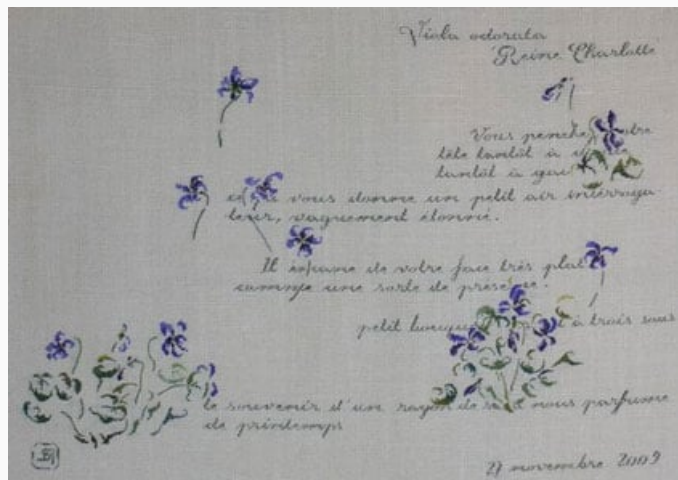 Viola odorata
'Reine Charlotte'
Vous penchez votre
tête tantôt à
tantôt à
vous donne un petit air interroga-
teur, vaguement étonné.
Il émane de votre face très plate
comme une sorte de présence.
petit bouquet à trois sous
le souvenir d'un rayon de nous parfume
de printemps
27 novembre 2009